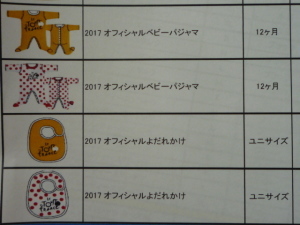 2017 オフィシャルベビーパジャマ 12ヶ月
2017 オフィシャルベビーパジャマ 12ヶ月
2017 オフィシャルよだれかけ ユニサイズ
2017 オフィシャルよだれかけ ユニサイズ